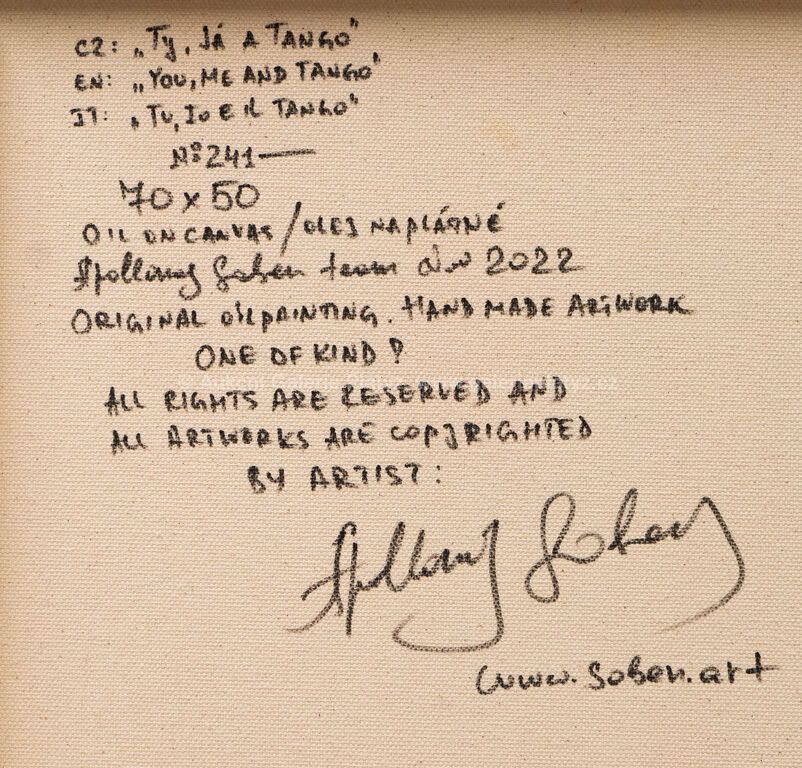 CZ: „Ty, Já A TANGO“
EN: „YOU, ME AND TANGO“
IT: „TU, Io E IL TANGO“
Nº241—
70 x 50
OIL ON CANVAS / OLEJ NA PLÁTNĚ
Apollonuy Soben team 2022
ORIGINAL OIL PAINTING. HAND MADE ARTWORK
ONE OF KIND!
ALL RIGHTS ARE RESERVED AND
ALL ARTWORKS ARE COPYRIGHTED
BY ARTIST:
Soben
www.soben.art